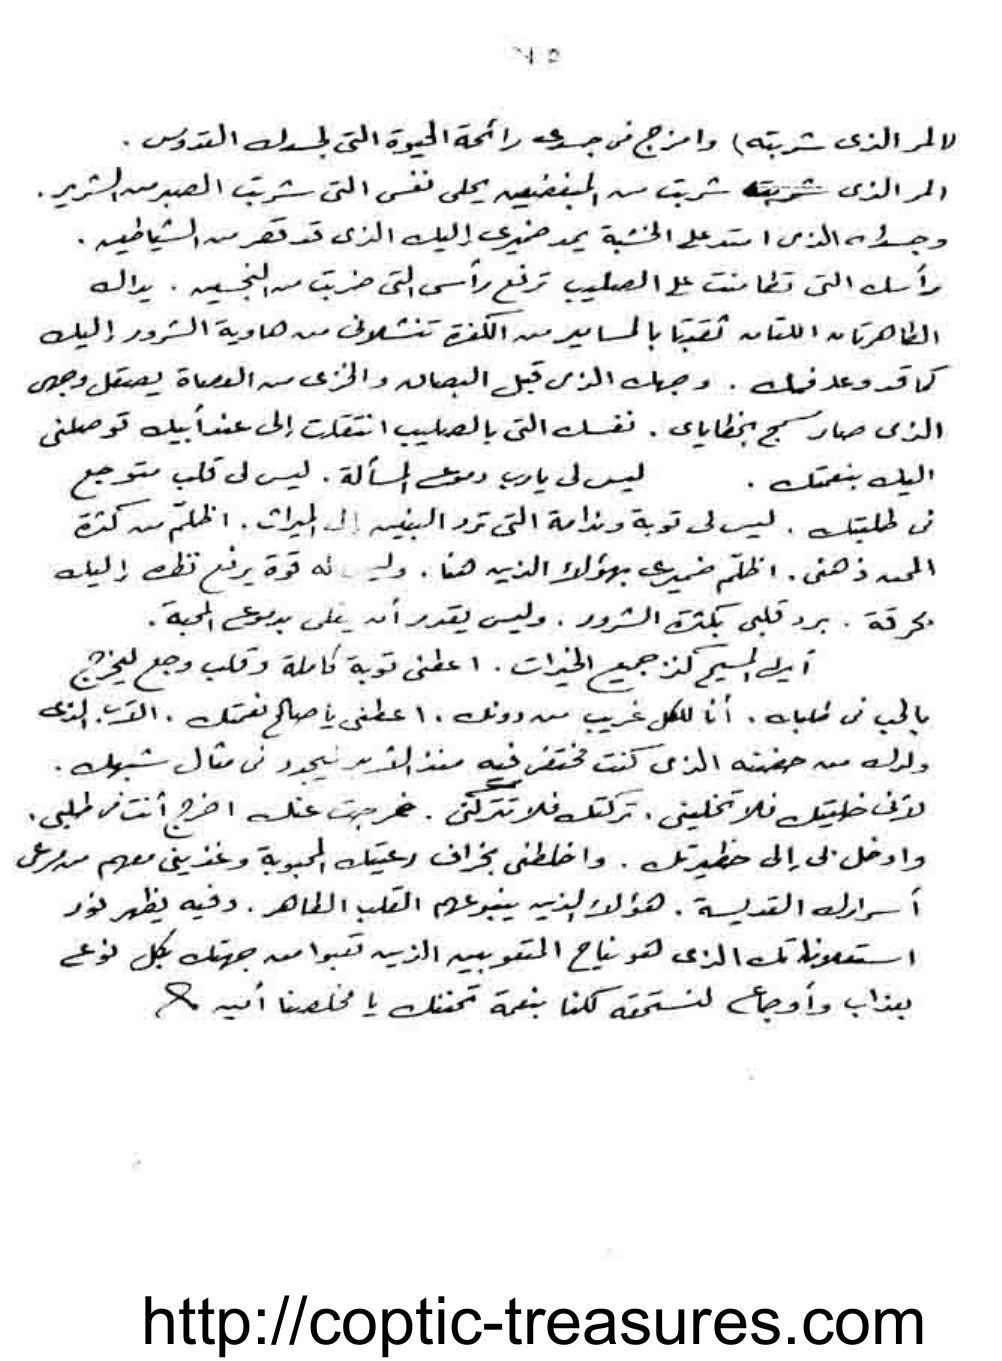 (المر الذى شربته) وامزج فى جسدى رائحة الحيوة التى لجسدك القدوس .
المر الذى شربت من المبغضين يحلى نفسى التى شربت الصبر من الشرير .
وجسدك الذى امتد على الخشبة يمد ضميرى إليك الذى قد قصر من الشياطين .
رأسك التى تطامنت على الصليب ترفع رأسى التى ضربت من النجسين . يداك
الطاهرتان اللتان ثقبتا بالمسامير من الكفرة تنشلانى من هاوية الشرور إليك
كما قد وعد فمك . وجهك الذى قبل البصاق والخزى من العصاة يصقل وجهى
الذى صار سمج بخطاياى . نفسك التى بالصليب انتقلت إلى عند أبيك توصلنى
اليك بنعمتك . ليس لى يارب دموع المسألة . ليس لى قلب متوجع
فى طلبتك . ليس لى توبة وندامة التى ترد البنين إلى الميراث . اظلمّ من كثرة
المحن ذهنى . اظلمّ ضميرى بهؤلاء الذين هنا . وليس له قوة يرفع نظره إليك
بحرقة . برد قلبى بكثرة الشرور . وليس يقدر أن يغلى بدموع المحبة .
أيها المسيح كنز جميع الخيرات . اعطنى توبة كاملة وقلب وجع ليخرج
بالحب فى طلبك . أنا للكل غريب من دونك . اعطنى يا صالح نعمتك . الآب الذى
ولدك من حضنه الذى كنت مختفى فيه منذ الأزل يجدد فىّ مثال شبهك .
لأنى خليتك فلا تخلينى . تركتك فلا تتركنى . خرجت عنك اخرج أنت فى طلبى .
وادخل بى إلى حظيرتك . واخلطنى بخراف رعيتك المحبوبة وغذينى معهم من مرعى
أسرارك القدسية . هؤلاء الذين ينبوعهم القلب الطاهر . وفيه يظهر نور
استعلاناتك الذى هو نياح المتعوبين الذين تعبوا من جهتك بكل نوع
بعذاب وأوجاع لنستحقه كلنا بنعمة تحننك يا مخلصنا أمين
http://coptic-treasures.com